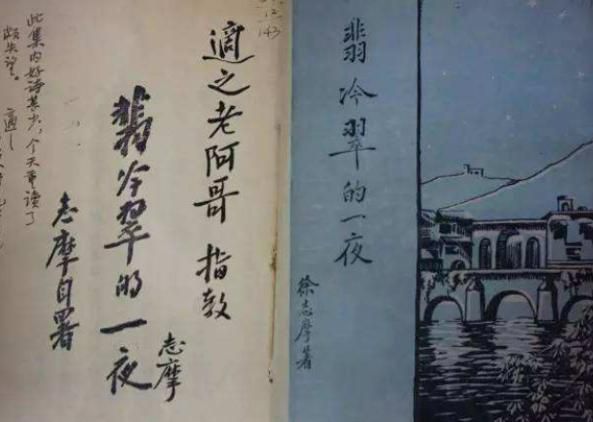 翡冷翠的一夜
徐志摩著
適之老阿哥 指教
志摩
翡冷翠的一夜
志摩自署
此集内好诗甚少，今天重读了
颇失望。 適之
12
143